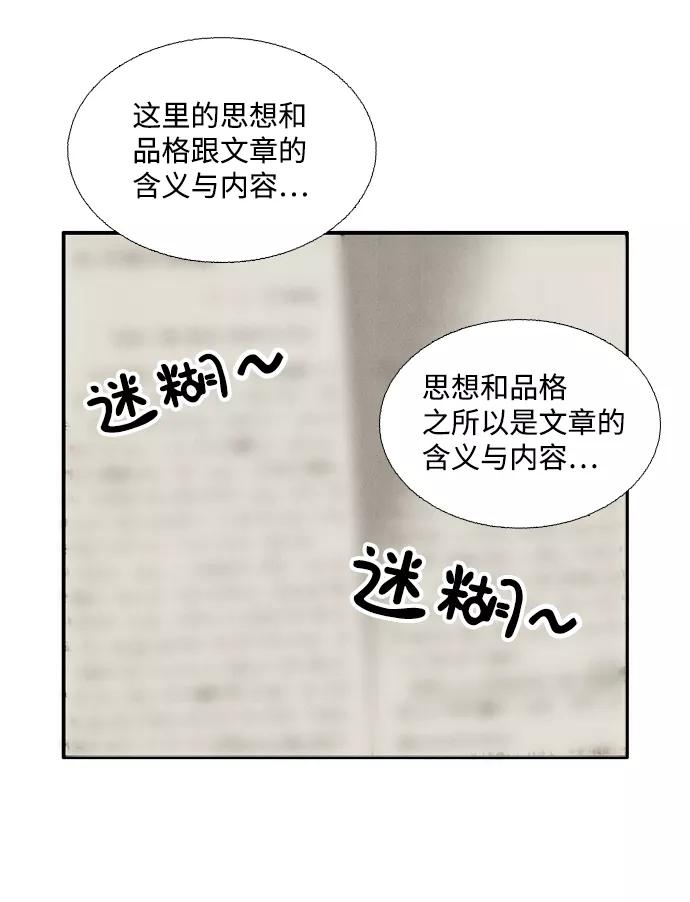 这里的思想和
品格跟文章的
含义与内容...
迷糊~
思想和品格
之所以是文章的
含义与内容...
迷糊~